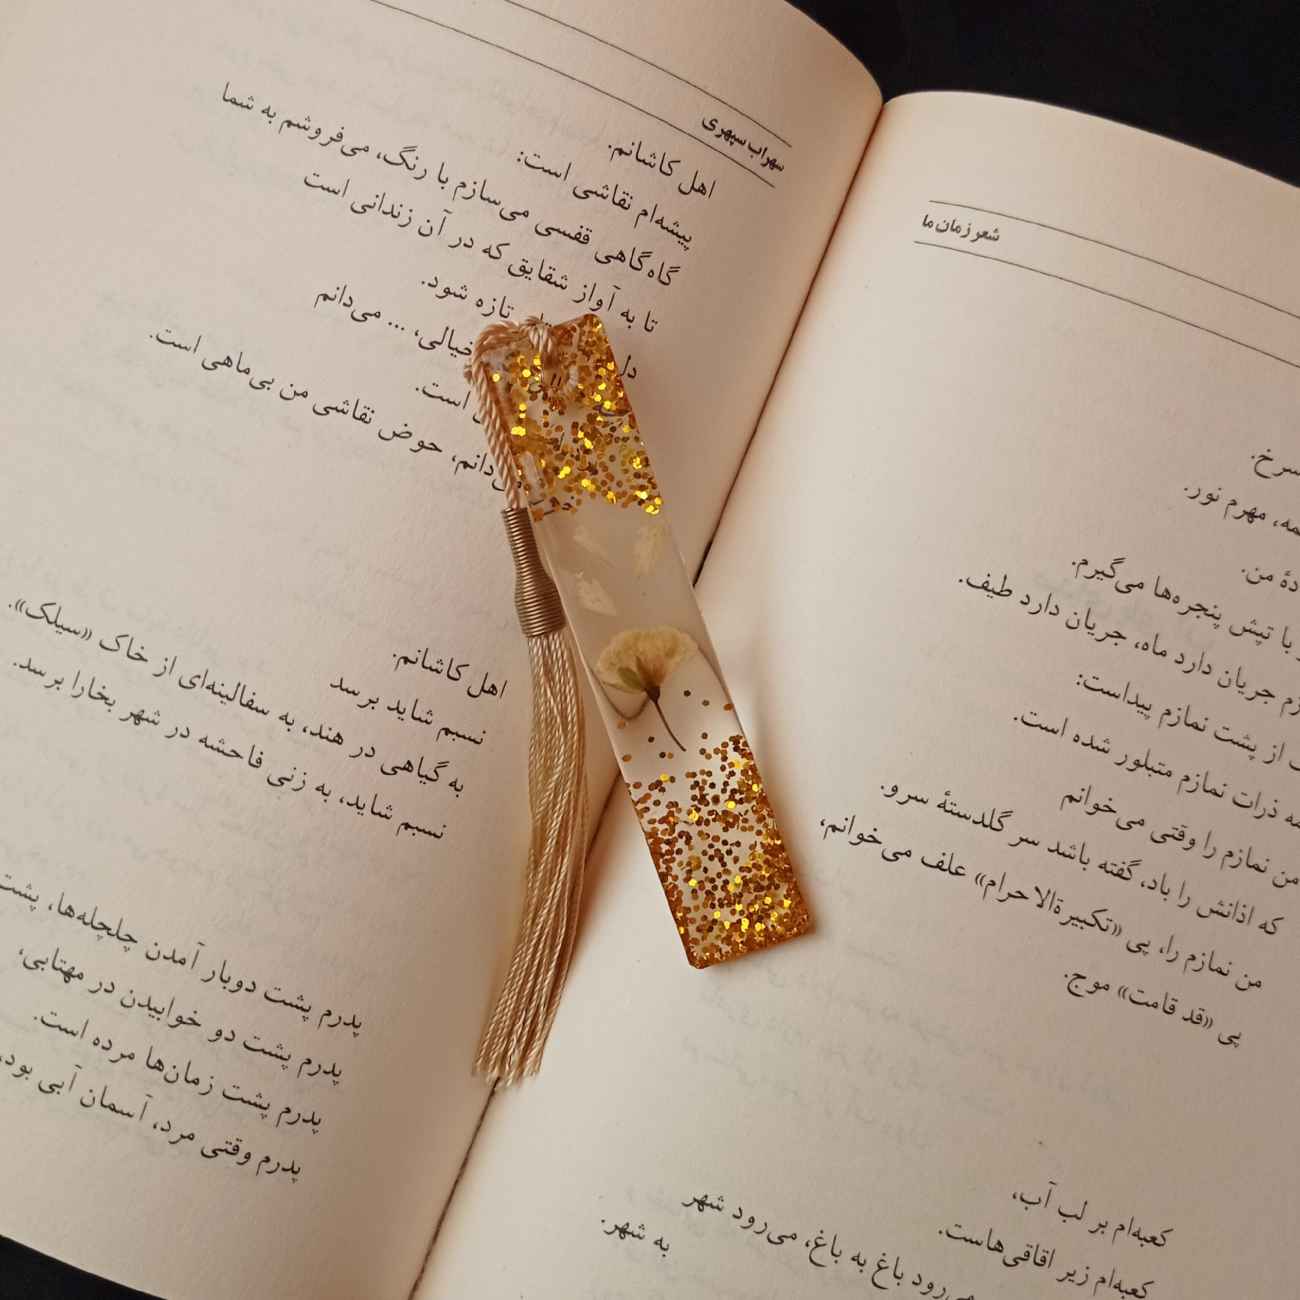 شعر زمان ما
سرخ.
مهرم نور.
من.
با تپش پنجره‌ها می‌گیرم.
جریان دارد ماه، جریان دارد طیف.
از پشت نمازم پیداست:
ذرات نمازم متبلور شده است.
من نمازم را وقتی می‌خوانم
که اذانش را باد، گفته باشد سر گلدستهٔ سرو.
من نمازم را، پی «تکبیرةالاحرام» علف می‌خوانم،
پی «قد قامت» موج.
کعبه‌ام بر لب آب،
کعبه‌ام زیر اقاقی‌هاست.
می‌رود باغ به باغ، می‌رود شهر
به شهر.
سهراب سپهری
اهل کاشانم.
پیشه‌ام نقاشی است:
گاه‌گاهی قفسی می‌سازم با رنگ، می‌فروشم به شما
تا به آواز شقایق که در آن زندانی است
دل تازه شود.
خیالی، ... می‌دانم
است.
می‌دانم، حوض نقاشی من بی‌ماهی است.
اهل کاشانم.
نسبم شاید برسد
به گیاهی در هند، به سفالینه‌ای از خاک «سیلک».
نسبم شاید، به زنی فاحشه در شهر بخارا برسد.
پدرم پشت دوبار آمدن چلچله‌ها، پشت
پدرم پشت دو خوابیدن در مهتابی،
پدرم پشت زمان‌ها مرده است.
پدرم وقتی مرد، آسمان آبی بود،